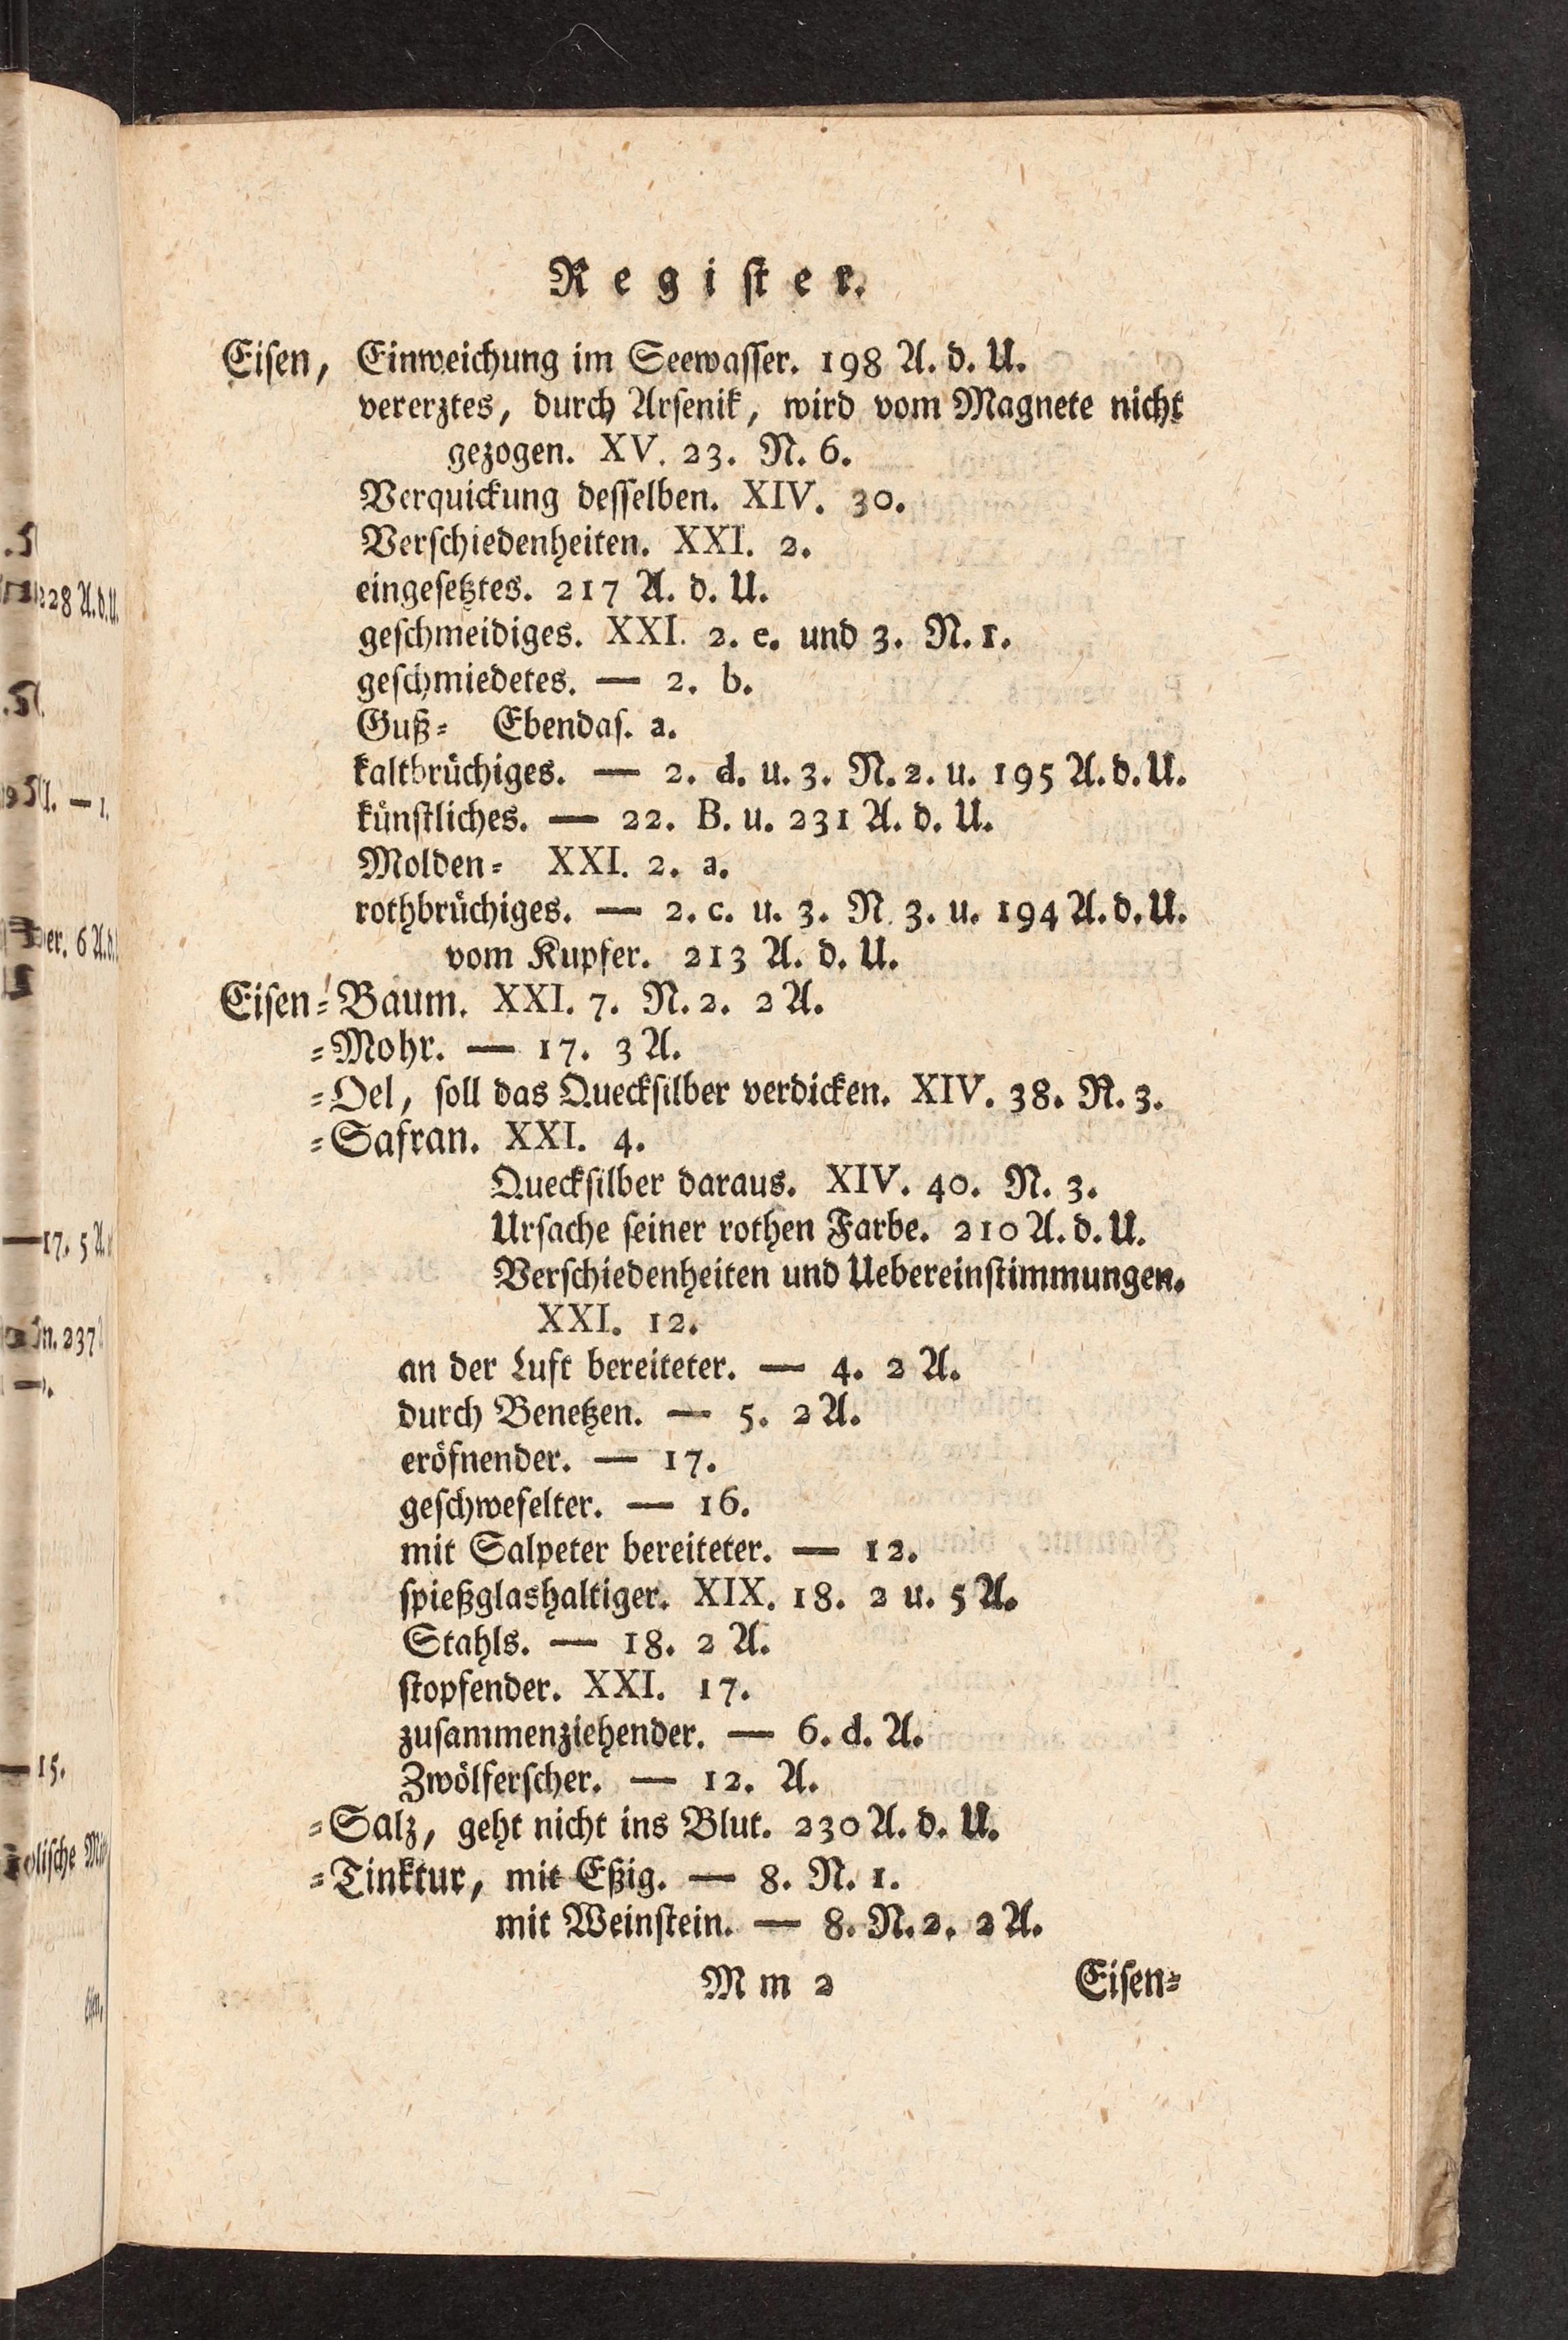 Regiſter.
Eiſen, Einweichung im Seewaſſer. 198 A. d. U.
vererztes, durch Arſenik, wird vom Magnete nicht
gezogen. XV. 23. N. 6.
Verquickung deſſelben. XIV. 30.
Verſchiedenheiten. XXI. 2.
eingeſetztes. 217 A. d. U.
geſchmeidiges. XXI. 2. e. und 3. N. 1.
geſchmiedetes. — 2. b.
Guß⸗ Ebendaſ. a.
kaltbrüchiges. — 2. d. u. 3. N. 2. u. 195 A. d. U.
künſtliches. — 22. B. u. 231 A. d. U.
Molden⸗ XXI. 2. a.
rothbrüchiges. — 2. c. u. 3. N. 3. u. 194 A. d. U.
vom Kupfer. 213 A. d. U.
Eiſen⸗Baum. XXI. 7. N. 2. 2 A.
⸗Mohr. — 17. 3 A.
⸗Oel, ſoll das Queckſilber verdicken. XIV. 38. N. 3.
⸗Safran. XXI. 4.
Queckſilber daraus. XIV. 40. N. 3.
Urſache ſeiner rothen Farbe. 210 A. d. U.
Verſchiedenheiten und Uebereinſtimmungen.
XXI. 12.
an der Luft bereiteter. — 4. 2 A.
durch Benetzen. — 5. 2 A.
eröfnender. — 17.
geſchwefelter. — 16.
mit Salpeter bereiteter. — 12.
ſpießglashaltiger. XIX. 18. 2 u. 5 A.
Stahls. — 18. 2 A.
ſtopfender. XXI. 17.
zuſammenziehender. — 6. d. A.
Zwölferſcher. — 12. A.
⸗Salz, geht nicht ins Blut. 230 A. d. U.
⸗Tinktur, mit Eßig. — 8. N. 1.
mit Weinſtein. — 8. N. 2. 2 A.
M m 2 Eiſen⸗